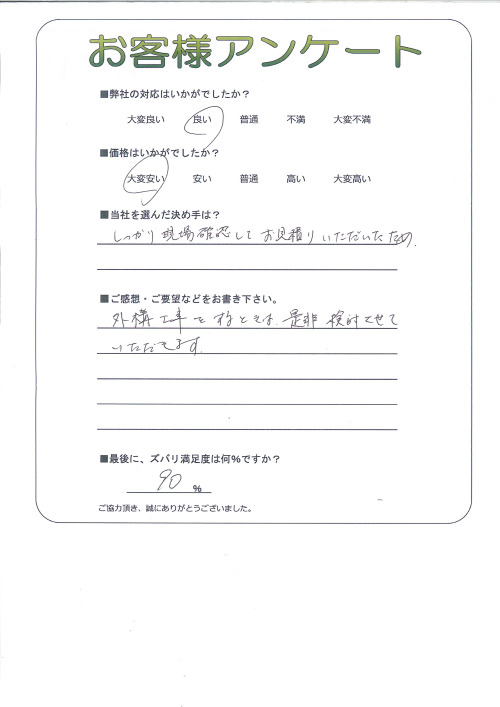 お客様アンケート
■弊社の対応はいかがでしたか？
大変良い 良い 普通 不満 大変不満
■価格はいかがでしたか？
大変安い 安い 普通 高い 大変高い
■当社を選んだ決め手は？
しっかり現場確認してお見積りいただいたため.
■ご感想・ご要望などをお書き下さい。
外構工事をするときは、是非検討させて
いただきます.
■最後に、ズバリ満足度は何%ですか？
90 %
ご協力頂き、誠にありがとうございました。